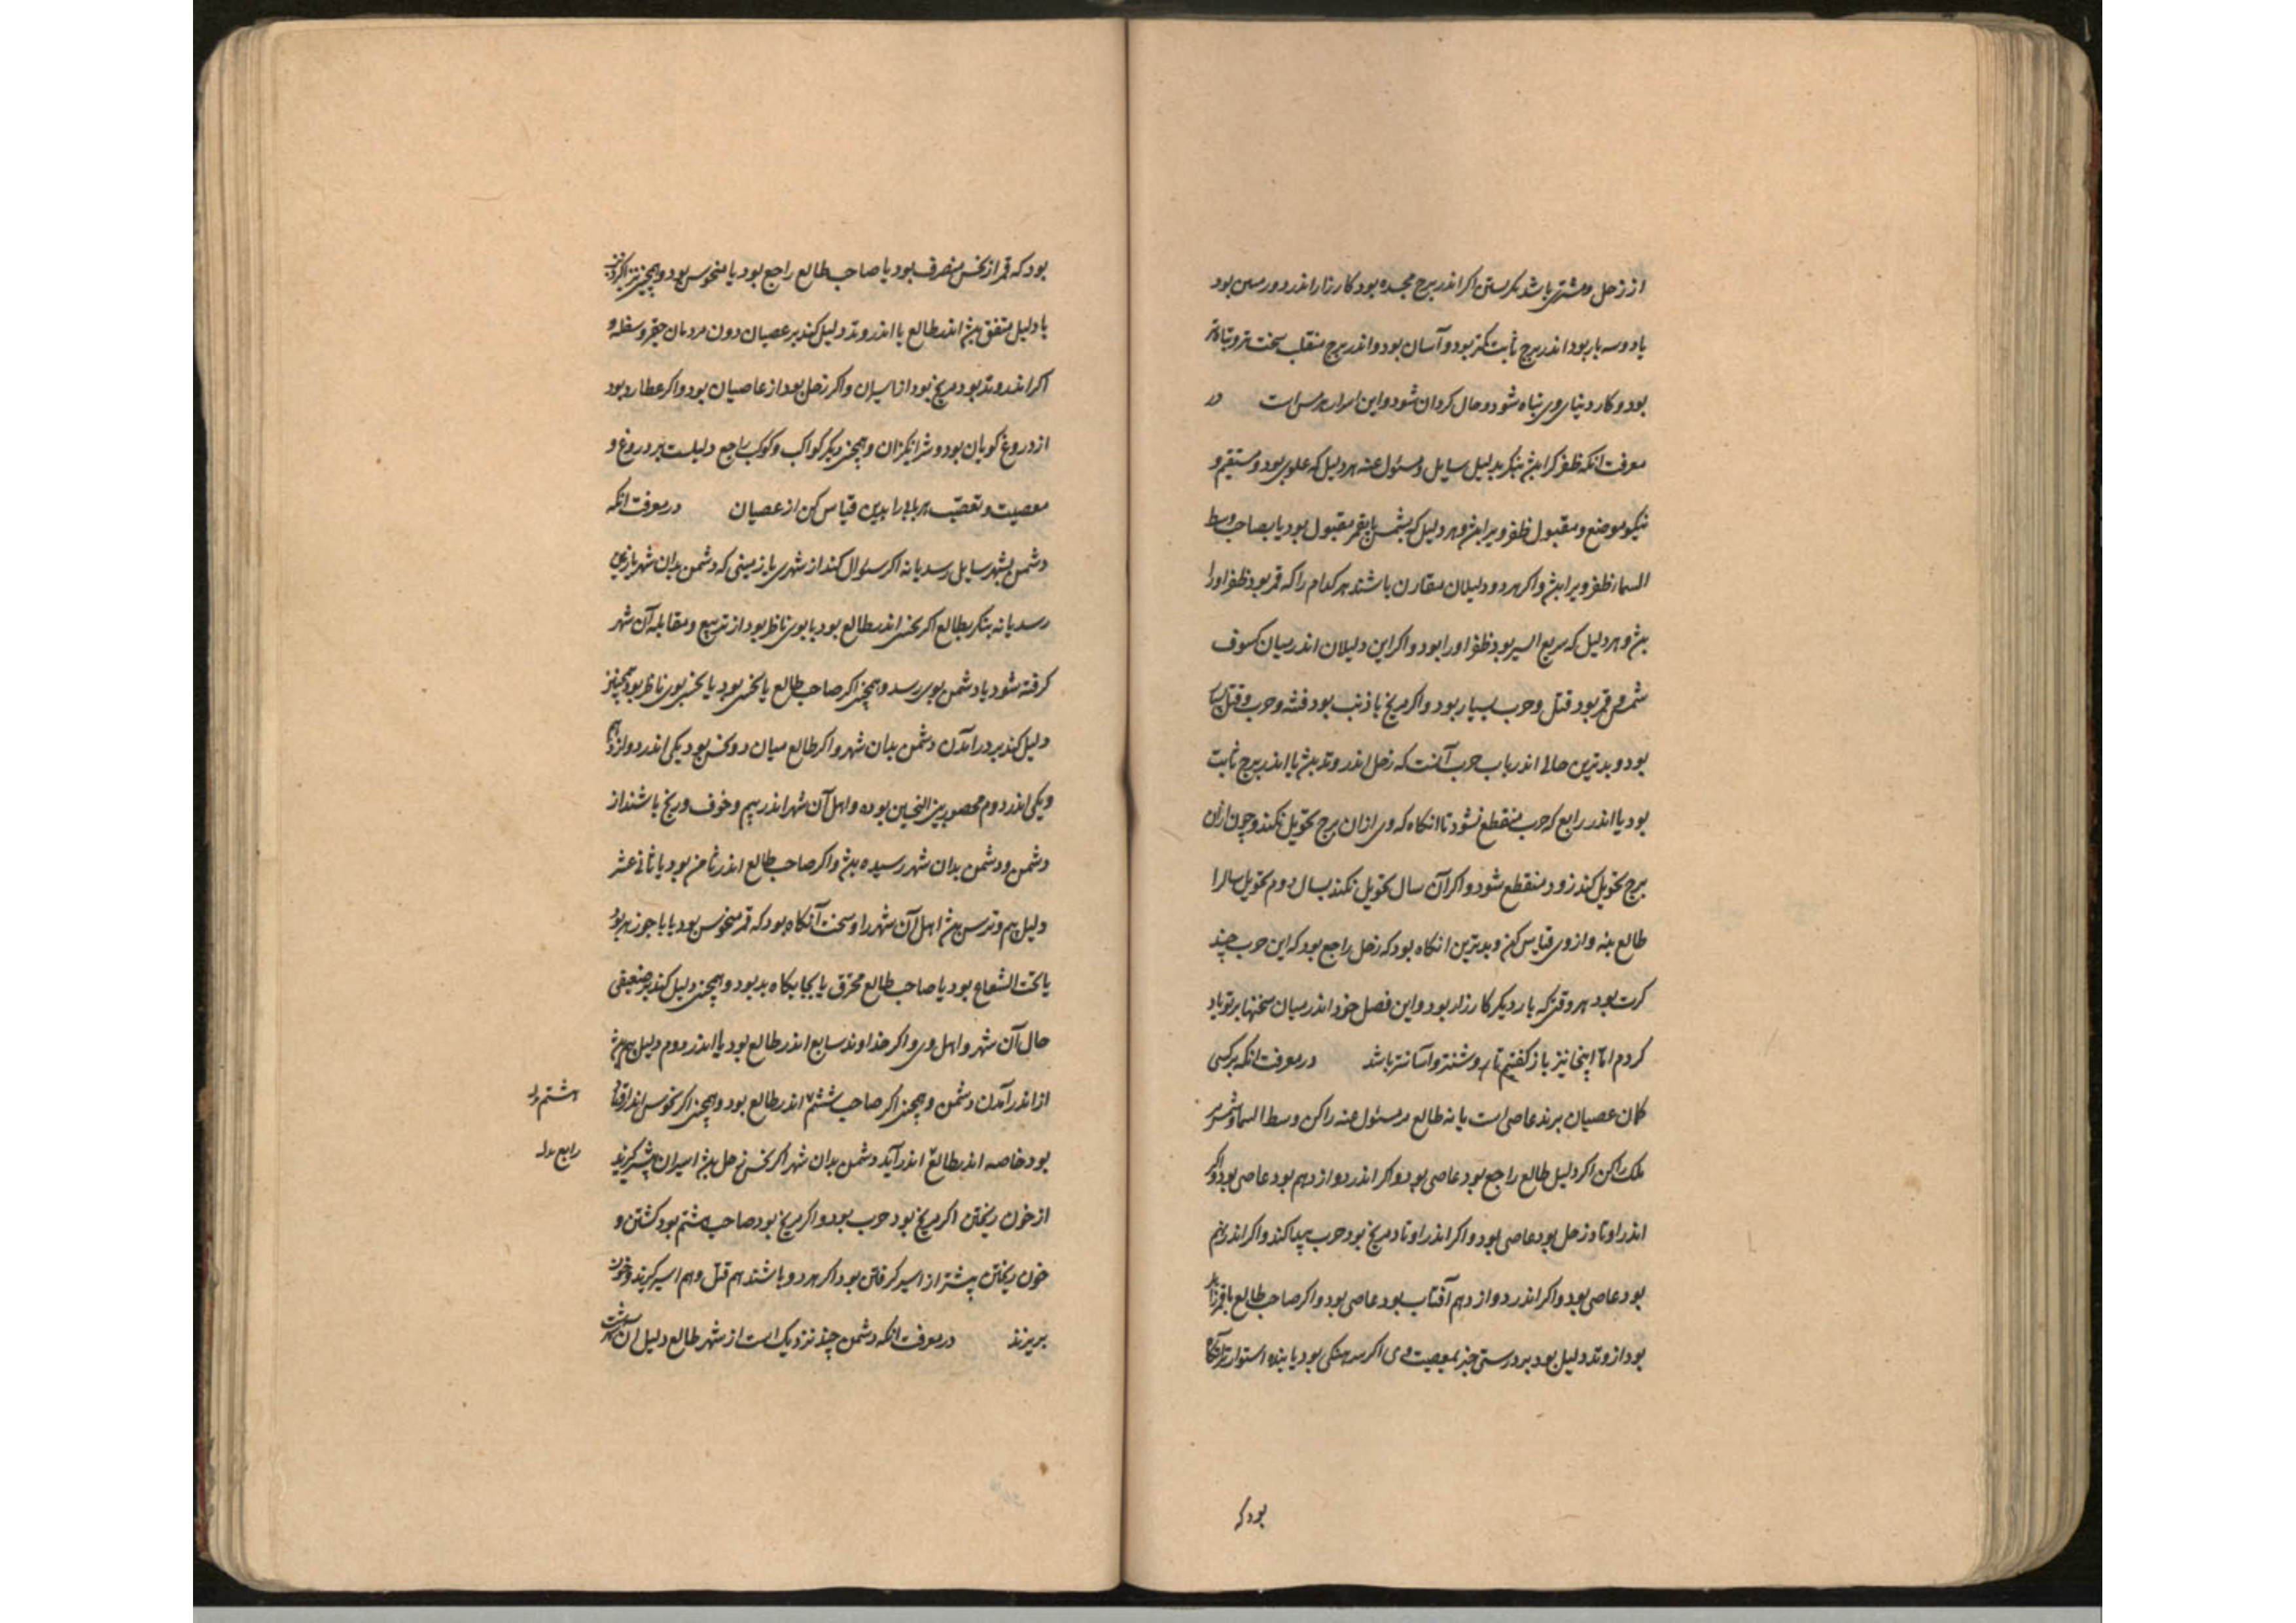 از زحل ومشتری باشد نکرستن اکر اندر برج مجسده بود کارزار اندر دو رمین بود
یا دو سه بار بود اندر برج ثابت کمتر بود و آسان بود و اندر برج منقلب سخت تر و تباه تر
بود و کار دنیاوی تباه شود و حال کردان شود و این اسرار هرمس است در
معرفت انکه ظفر کرا بیش بنکر بدلیل سایل ومسئول عنه هر دلیل که علوی بود ومستقیم و
نیکو موضع ومقبول ظفر ویرا بیش و هر دلیل که بشمس یا بقمر مقبول بود یا بصاحب وسط
السما ظفر ویرا بیش واکر هر دو دلیلان مقارن باشند هر کدام را که قمر بود ظفر اورا
بیش و هر دلیل که سریع السیر بود ظفر اورا بود واکر این دلیلان اندر میان کسوف
شمس وقمر بود قتل وحرب بسیار بود واکر مریخ با ذنب بود فتنه وحرب وقتل
بود و بدترین حالی اندر باب حرب آنست که زحل اندر وتد بیش یا اندر برج ثابت
بود یا اندر رابع که حرب منقطع نشود تا انکاه که وی از ان برج تحویل نکند وچون از ان
برج تحویل کند زود منقطع شود واکر آن سال تحویل نکند بسال دوم تحویل سال را
طالع بنه واز وی قیاس کن وبدترین انکاه بود که زحل راجع بود که این حرب چند
کرت بود هر وقتی که بار دیکر کارزار بود واین فصل خود اندر میان سخنها بر تو یاد
کردم اما اینجا نیز باز کفتیم تا روشنتر وآسانتر باشد در معرفت انکه برکسی
کمان عصیان برند عاصی است یا نه طالع مر مسئول عنه را کن وسط السما وشمس
ملک را کن اکر دلیل طالع راجع بود عاصی بود واکر اندر دوازدهم بود عاصی بود واکر
اندر اوتاد زحل بود عاصی بود واکر اندر اوتاد مریخ بود حرب پیدا کند واکر اندر نهم
بود عاصی بود واکر اندر دوازدهم آفتاب بود عاصی بود واکر صاحب طالع یا قمر
بود از وتد دلیل بود بر درستی خبر بمعصیت وی اکر سرهنکی بود یا بنده استوارتر آنکاه
بود که
بود که قمر از نحس منصرف بود یا صاحب طالع راجع بود یا منحوس بود وهمچنین نیز اکر
با دلیل متفق بیش اندر طالع یا اندر وتد دلیل کند بر عصیان دون مردمان حقیر وسفله و
اکر اندر وتد بود مریخ بود از اسیران واکر زحل بود از عاصیان بود واکر عطارد بود
از دروغ کویان بود وشر انکیزان وهمچنین دیکر کواکب وکوکب راجع دلیلست بر دروغ و
معصیت وتعصب هر بابرا بدین قیاس کن از عصیان در معرفت انکه
دشمن بشهر سایل رسد یا نه اکر سئوال کند از شهری یا زمینی که دشمن بدان شهر یا زمین
رسد یا نه بنکر بطالع اکر نحسی اندر طالع بود یا بوی ناظر بود از تربیع ومقابله آن شهر
کرفته شود یا دشمن بوی رسد وهمچنین اکر صاحب طالع با نحس بود یا نحس بوی ناظر بود همچنین
دلیل کند بر درآمدن دشمن بدان شهر واکر طالع میان دو نحس بود یکی اندر دوازدهم
ویکی اندر دوم محصور بین النحسین بوده واهل آن شهر اندر بیم وخوف ورنج باشند از
دشمن ودشمن بدان شهر رسیده بیش واکر صاحب طالع اندر ثامن بود یا ثانی عشر
دلیل بیم وترس بیش اهل آن شهر را وسخت آنکاه بود که قمر منحوس بود یا با جوزهر بود
یا تحت الشعاع بود یا صاحب طالع محترق یا بجایکاه بد بود وهمچنین دلیل کند بر ضعیفی
حال آن شهر واهل وی واکر خداوند سابع اندر طالع بود یا اندر دوم دلیل بیم بیش
از اندر آمدن دشمن وهمچنین اکر صاحب ششم اندر طالع بود وهمچنین اکر نحوس اندر اوتاد
هشتم
بود خاصه اندر طالع اندر آید دشمن بدان شهر اکر نحس زحل بیش اسیران بیشتر کیرند
رابع
از خون ریختن اکر مریخ بود حرب بود واکر مریخ بود صاحب هشتم بود کشتن و
خون ریختن بیشتر از اسیر کرفتن بود واکر هر دو باشند هم قتل وهم اسیر کیرند وخون
بریزند در معرفت انکه دشمن چند نزدیک است از شهر طالع دلیل آن